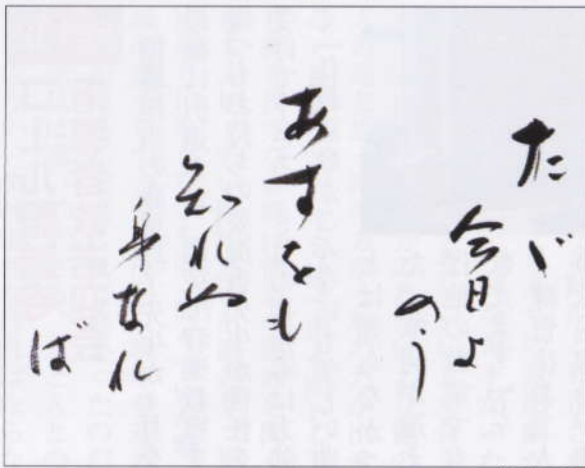 たゞ
今日よ
のう
あすをも
知れぬ
身なれ
ば